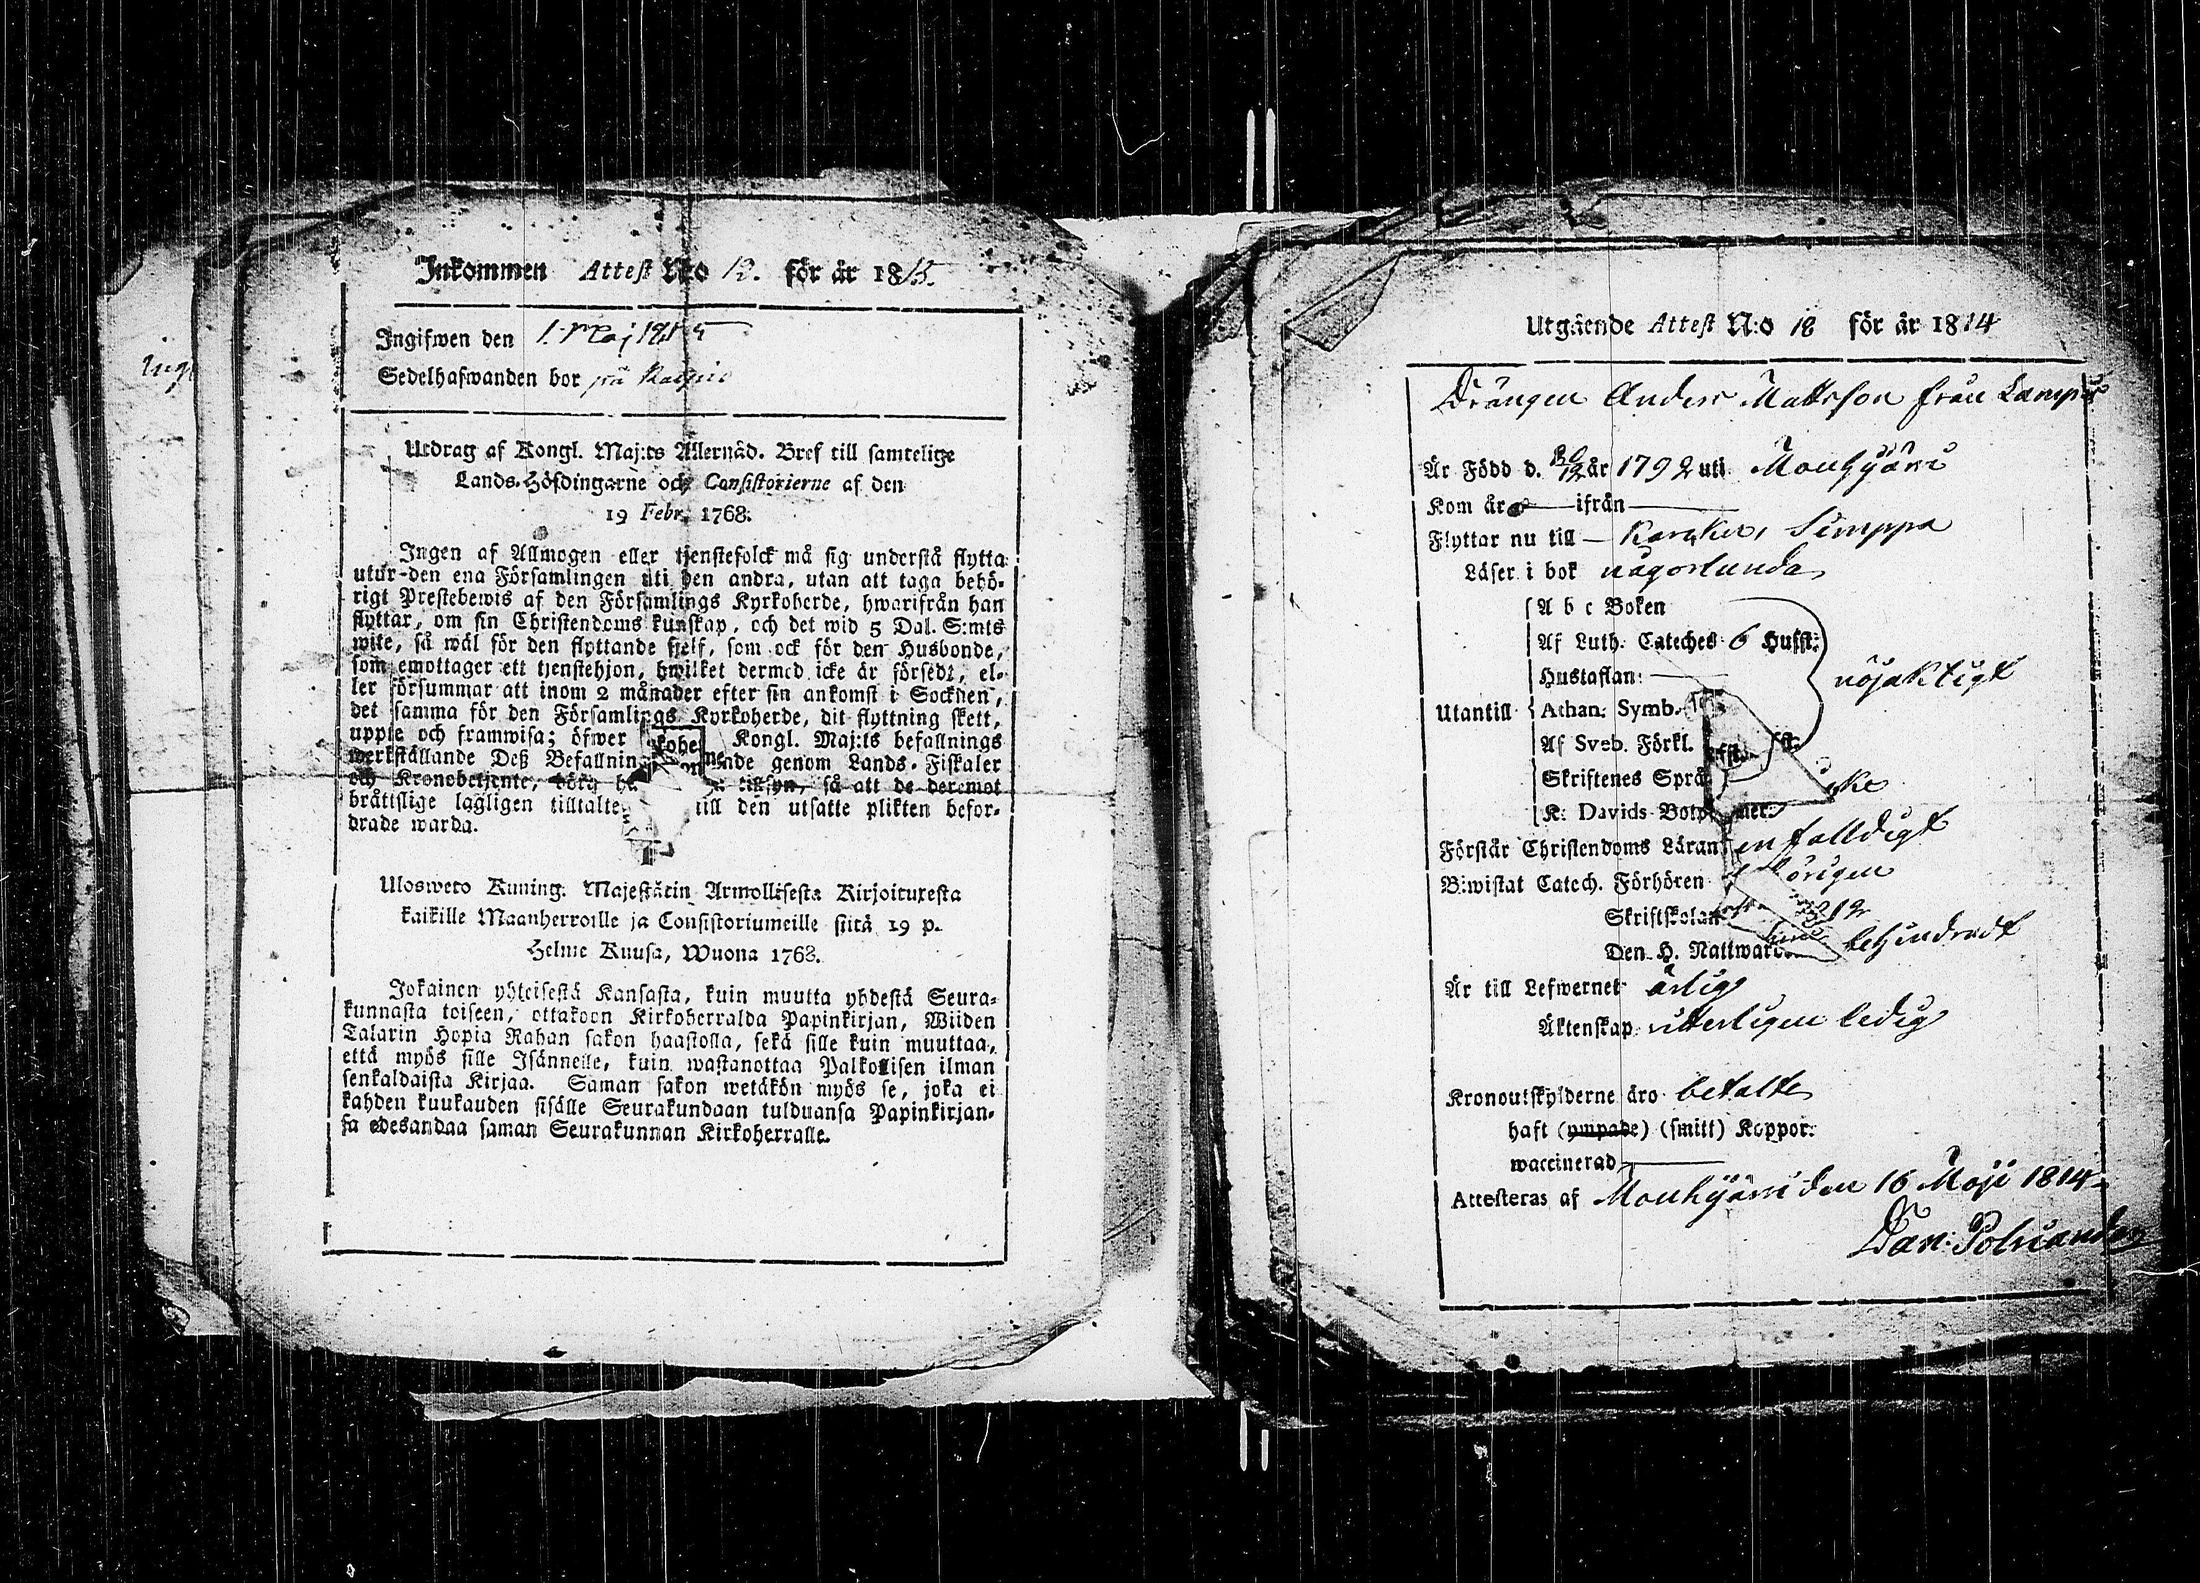 Inkommen Attest No 12. för år 1815.
Ingifwen den 1. Maj 1815
Sedelhafwanden bor på
Utdrag af Kongl. Maj:ts Allernåd. Bref till samtelige
Lands-Höfdingarne och Consistorierne af den
19 Febr. 1768.
Ingen af Allmogen eller tjenstefolck må sig understå flytta
utur den ena Församlingen uti den andra, utan att taga behö-
rigt Prestebewis af den Församlings Kyrkoherde, hwarifrån han
flyttar, om sin Christendoms kunskap, och det wid 5 Dal. S:mts
wite, så wäl för den flyttande sjelf, som ock för den Husbonde,
som emottager ett tjenstehjon, hwilket dermed icke är försedt, el-
ler försummar att inom 2 månader efter sin ankomst i Socknen,
det samma för den Församlings Kyrkoherde, dit flyttning skett,
uppte och framwisa; öfwer Kongl. Maj:ts befallnings
werkställande Deß Befallnin nde genom Lands-Fiskaler
och Kronobetjente, böra tillsyn, så att de deremot
bråttslige lagligen tilltalte till den utsatte plikten befor-
drade warda.
Ulosweto Kuning. Majestätin Armollisesta Kirjoituxesta
kaikille Maanherroille ja Consistoriumeille siitä 19 p.
Helme Kuusa, Wuona 1768.
Jokainen yhteisestä Kansasta, kuin muutta yhdestä Seura-
kunnasta toiseen, ottakoon Kirkoherralda Papinkirjan, Wiiden
Talarin Hopia Rahan sakon haastolla, sekä sille kuin muuttaa,
että myös sille Isännelle, kuin wastanottaa Palkollisen ilman
senkaldaista Kirjaa. Saman sakon wetäkön myös se, joka ei
kahden kuukauden sisälle Seurakundaan tulduansa Papinkirjan-
sa edesandaa saman Seurakunnan Kirkoherralle.
Utgående Attest N:o 18 för år 1814
Drängen Anders Mattsson från Lamp
Är Född d. 20/12 år 1792 uti Mouhijärvi
Kom år — ifrån —
Flyttar nu till — Karcku, Simppa
Läser i bok någorlunda
A b c Boken
Af Luth. Cateches 6 Hufst:
Hustaflan:
nöjaktigt
Utantill Athan. Symb.
Af Sveb. Förkl.
Skriftenes Språ
K. Davids Botp mer:
Förstår Christendoms Läran enfalldigt
Biwistat Catech. Förhören
Skriftskolan 1812
Den H. Nattward behindradt
Är till Lefwernet ärlig
Äktenskap witterligen ledig
Kronoutskylderne äro betalte
haft (ympade) (smitt) Koppor:
waccinerad —
Attesteras af Mouhijärvi den 16 Maji 1814
Dan: Polviander